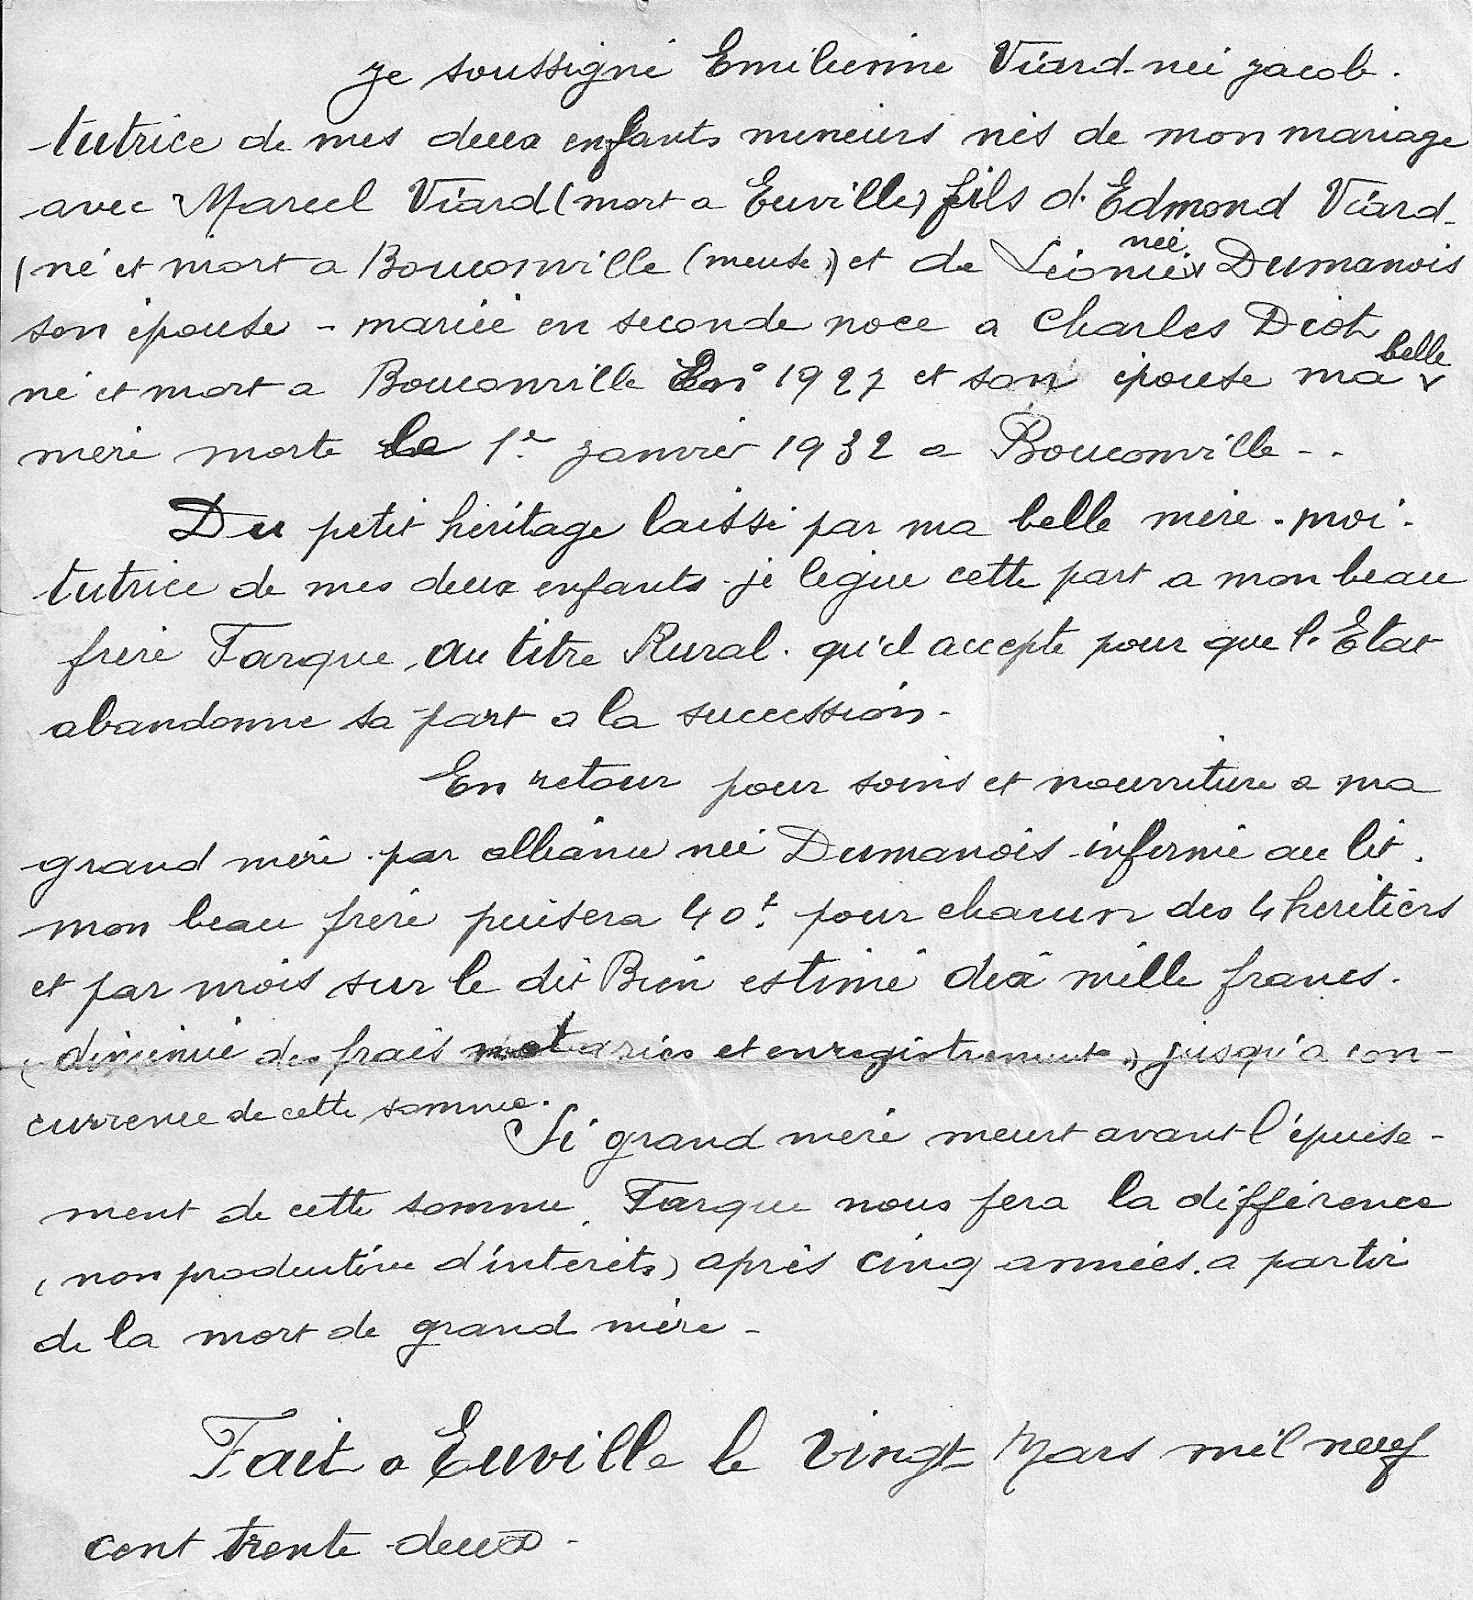 Je soussigné Emilienne Viard née Jacob.
tutrice de mes deux enfants mineurs nés de mon mariage
avec Marcel Viard (mort a Euville) fils d'Edmond Viard
(né et mort a Bouconville (meuse) et de Léonie née Dumanois
son épouse - mariée en seconde noce a Charles Diot
né et mort a Bouconville En 1927 et son épouse ma belle
mère morte le 1er janvier 1932 a Bouconville - .
Du petit héritage laissé par ma belle mère - moi -
tutrice de mes deux enfants - je lègue cette part a mon beau
frère Farque, au titre Rural. qu'il accepte pour que l'Etat
abandonne sa part a la succession -
En retour pour soins et nourriture a ma
grand mère par alliance née Dumanois - infirme au lit.
mon beau frère puisera 40f pour chacun des 4 héritiérs
et par mois sur le dit Bien estimé dix mille francs.
(diminué des frais notariés et enregistrements) jusqu'a con-
currence de cette somme.
Si grand mère meurt avant l'épuise-
ment de cette somme, Farque nous fera la différence
(non productive d'intérêts) après cinq années. a partir
de la mort de grand mère -
Fait a Euville le vingt Mars mil neuf
cent trente deux -